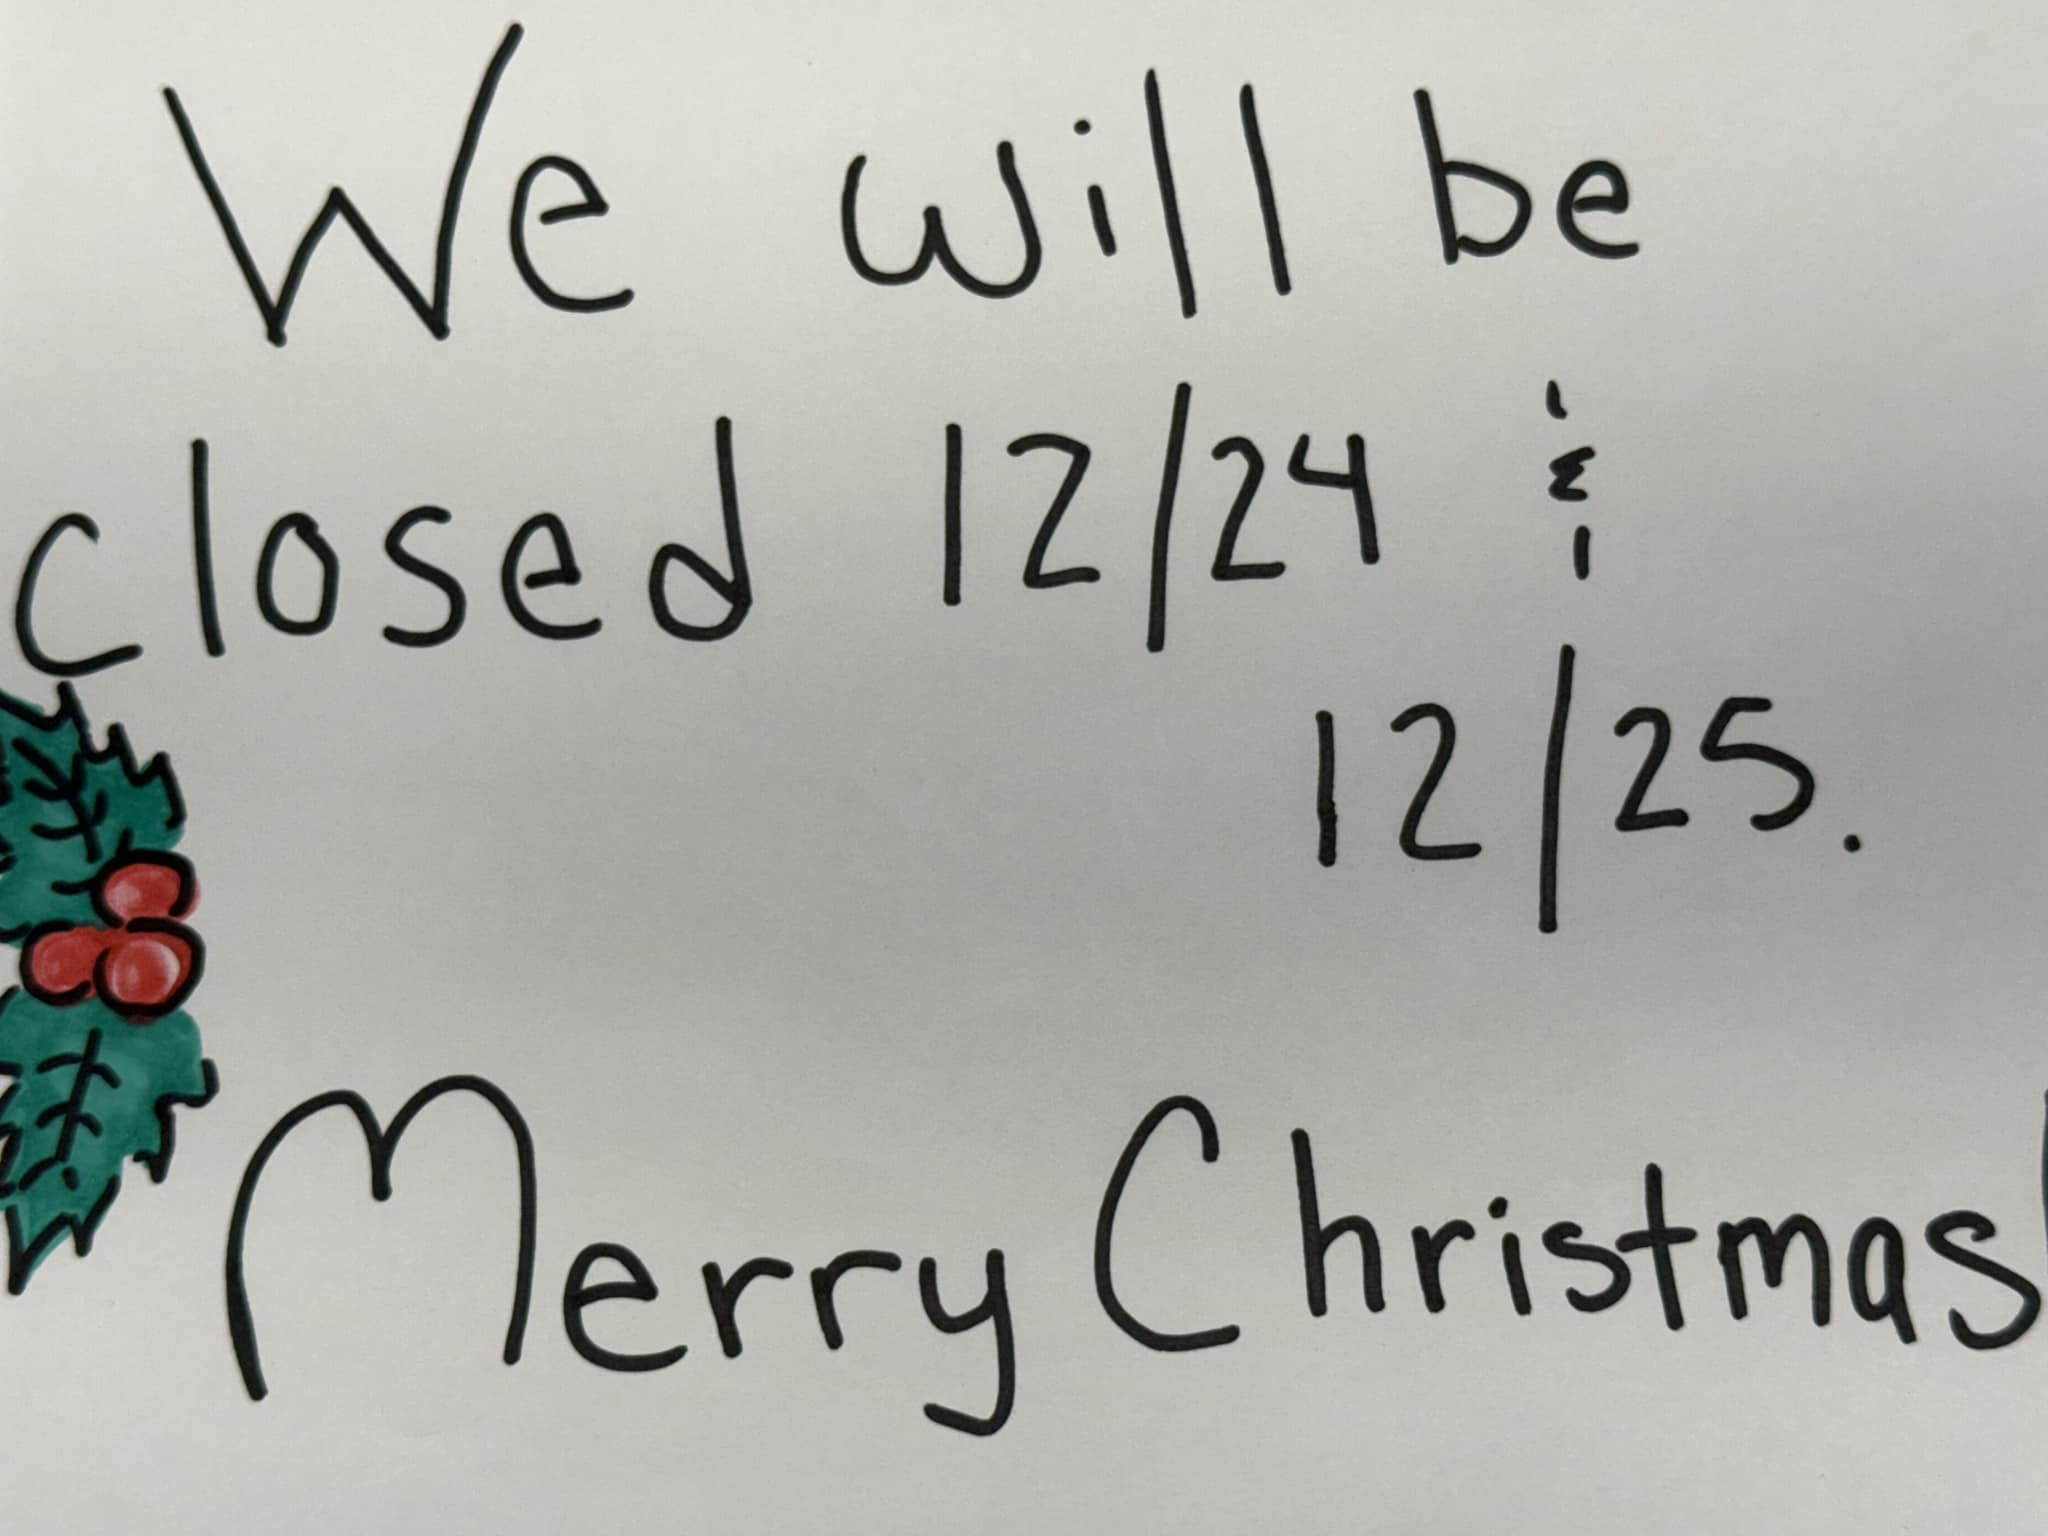 We will be
closed 12/24 &
12/25.
Merry Christmas!